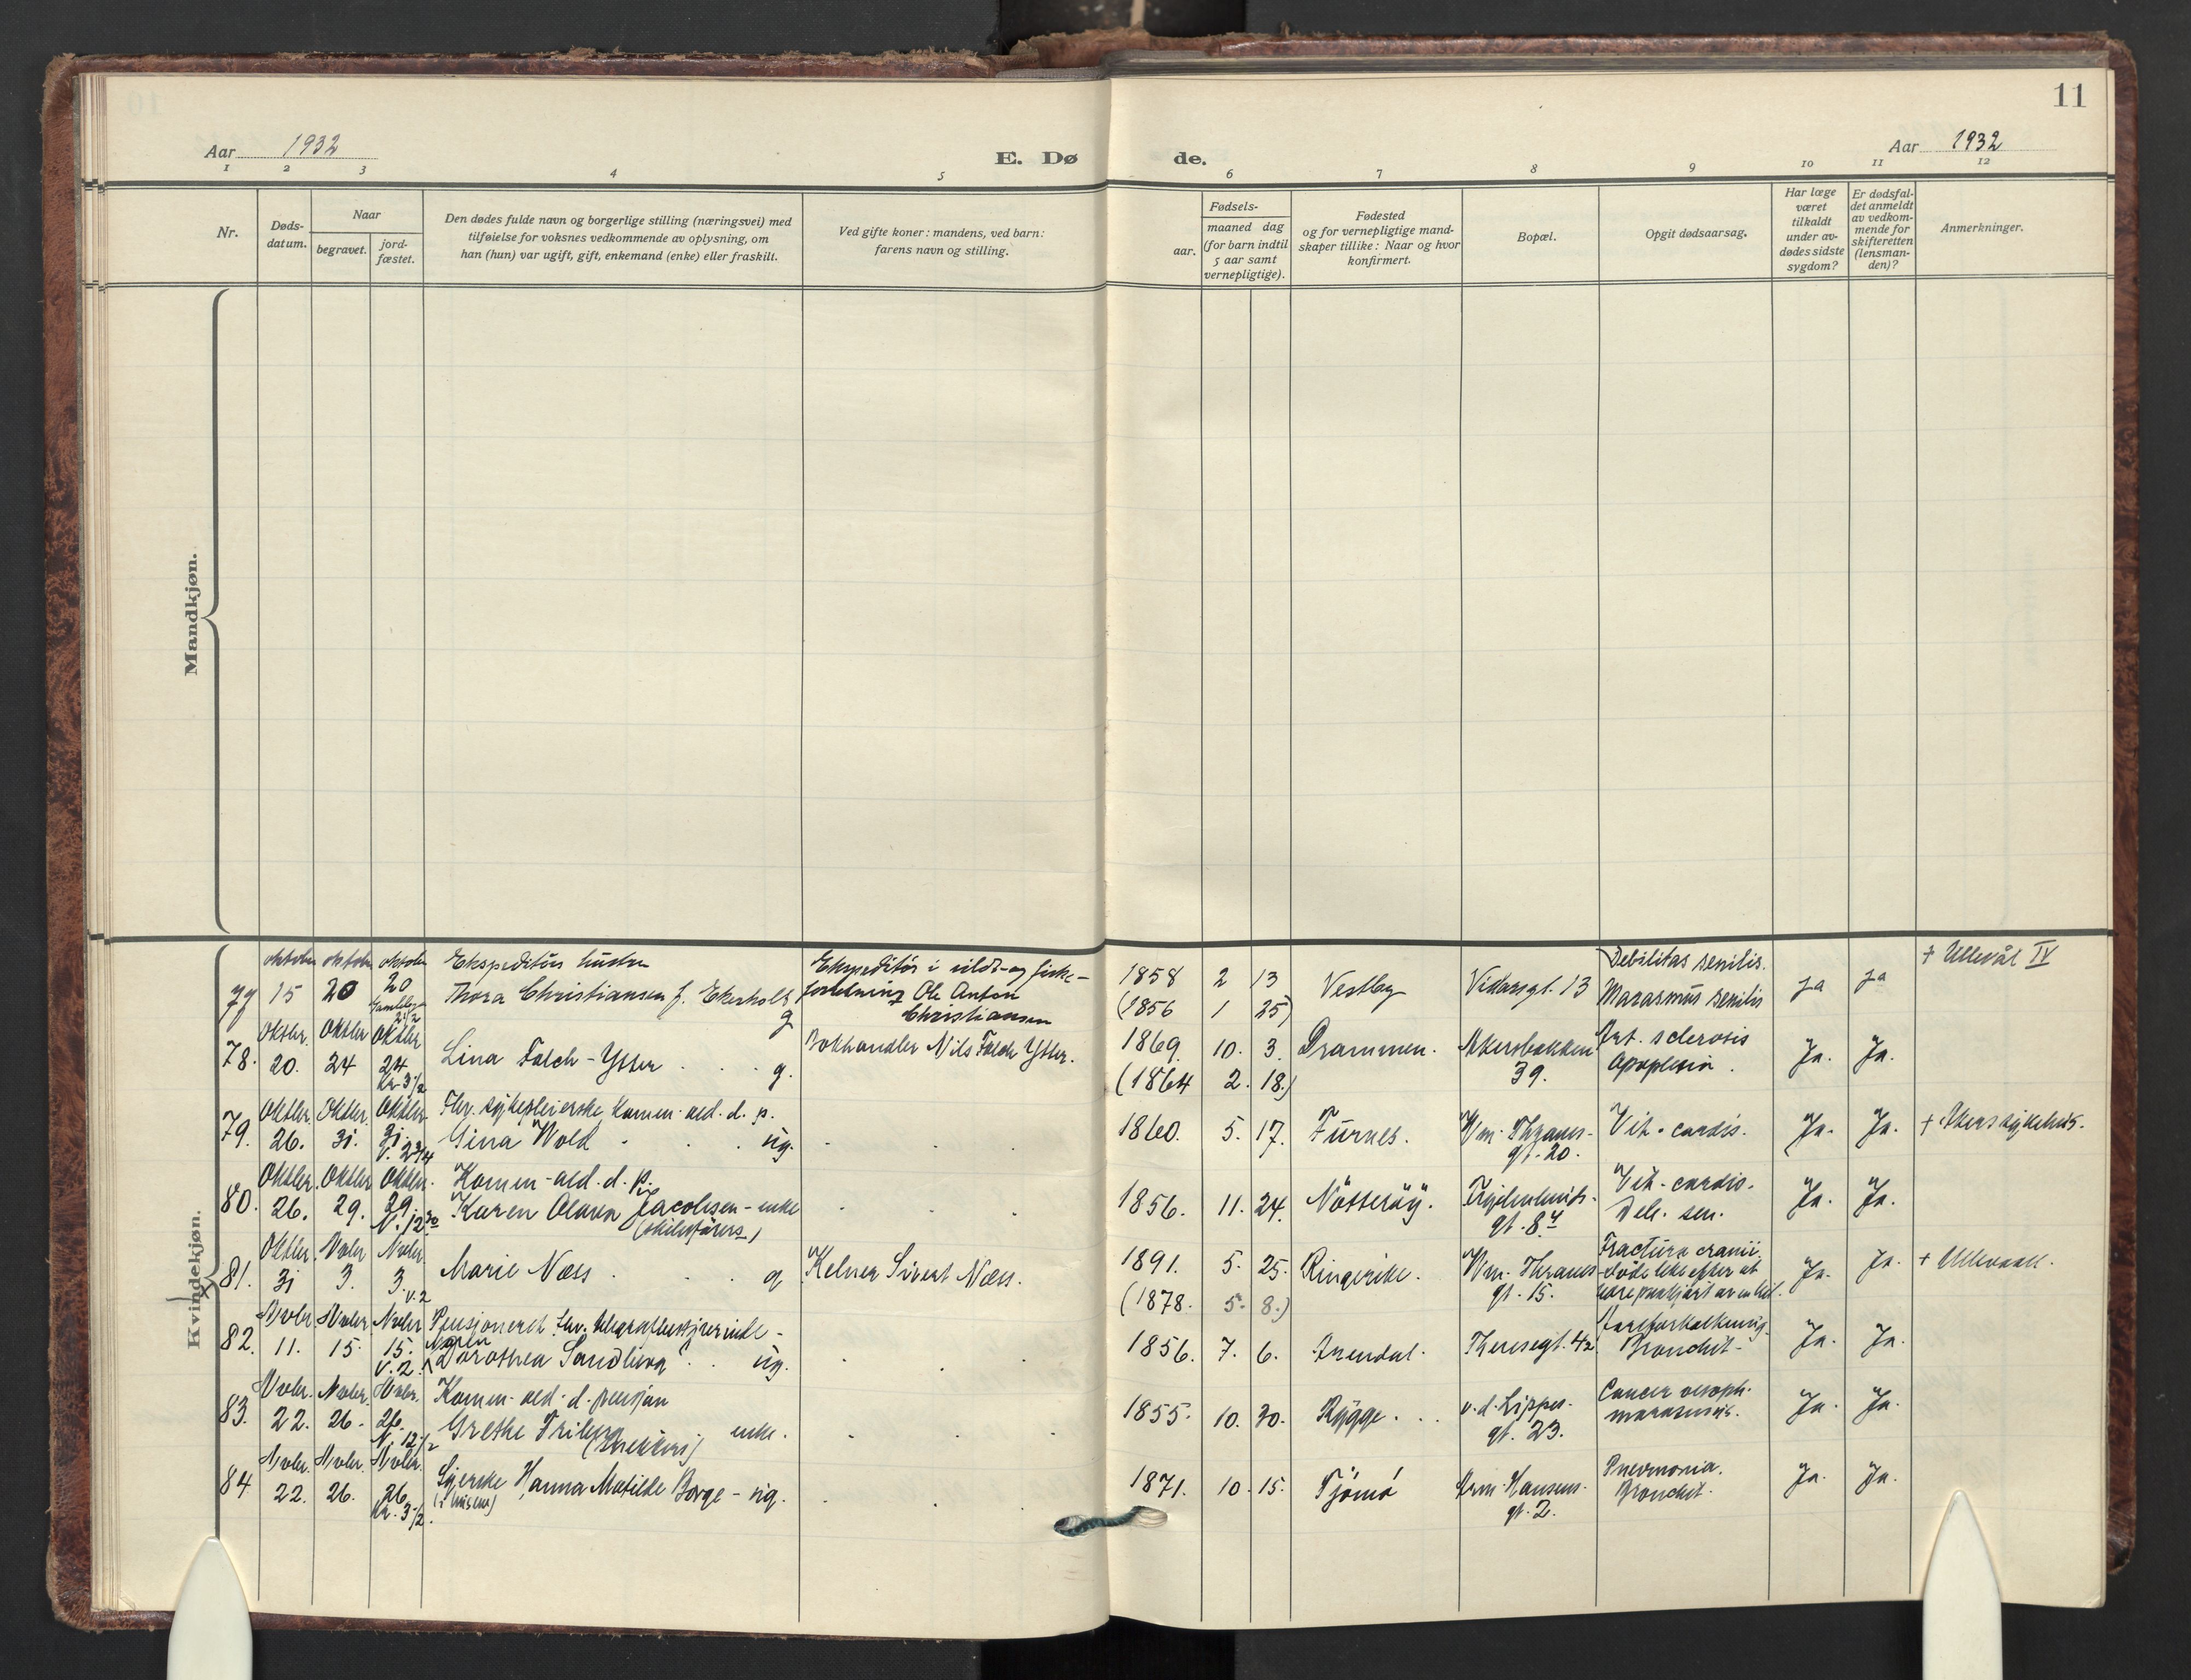 11
Aar 1932
E. Dø
de.
Aar 1932
1 2 3 4 5 6 7 8 9 10 11 12
Nr.
Døds-
datum.
Naar
begravet.
jord-
fæstet.
Den dødes fulde navn og borgerlige stilling (næringsvei) med
tilføielse for voksnes vedkommende av oplysning, om
han (hun) var ugift, gift, enkemand (enke) eller fraskilt.
Ved gifte koner: mandens, ved barn:
farens navn og stilling.
Fødsels-
aar.
maaned dag
(for barn indtil
5 aar samt
vernepligtige).
Fødested
og for vernepligtige mand-
skaper tillike: Naar og hvor
konfirmert.
Bopæl.
Opgit dødsaarsag.
Har læge
været
tilkaldt
under av-
dødes sidste
sygdom?
Er dødsfal-
det anmeldt
av vedkom-
mende for
skifteretten
(lensman-
den)?
Anmerkninger.
Mandkjøn.
Kvindekjøn.
oktober oktober oktober Ekspeditørs hustru Ekspeditør i vildt- og fiske- Debilitas senilis. + Ullevål IV
77 15 20 20 Thora Christiansen f. Ekerholt forretning Ole Anton 1858 2 13 Vestby Vidarsgt. 13 Marasmus senilis ja ja
2 1/2 g Christiansen (1856 1 25)
Oktbr. Oktbr Oktbr Bokhandler Nils Falch Ytter. 1869. 10. 3. Drammen. Akersbakken Art. sclerosis
78. 20. 24 24 Lina Falch-Ytter g. 39. Apoplexia. Ja. Ja.
Kr. 3 1/2 (1864 2. 18.)
Oktbr. Oktbr. Oktbr. Fhv. sykepleierske Komm. ald. d. p.
79. 26. 31. 31. Gina Wold ug. 1860. 5. 17. Furnes. Wm. Thranes- Vit. cordis. Ja. Ja. + Akers sykehus.
V. 2 3/4 gt. 20.
Oktbr. Oktbr Oktbr. Komm. ald. d. p.
80. 26. 29. 29. Karen Olava Jacobsen - enke 1856. 11. 24. Nøtterøy. gt. 8 Vit. cordis. Ja. Ja.
V. 12 30 (skibsførers) Deb. sen.
Oktbr. Nvbr Nvbr. Fractura cranii.
81. 31 3. 3. Marie Næss g. Kelner Sivert Næss. 1891. 5. 25. Ringerike. Wm. Thranes- døde like efter at Ja. Ja. + Ullevaal.
V. 2 (1878. 5. 8.) gt. 15. være paakjørt av en bil.
Nvbr. Nvbr. Nvbr Pensjonert fhv. Aareforkalkning.
82. 11. 15. 15. Maren Dorothea ug. 1856. 7. 6. Arendal. Theresegt. 42 Bronchit. Ja. Ja.
V. 2.
Nvbr. Nvbr. Nvbr. Komm. ald. d. pensjon Cancer oesoph.
83. 22. 26. 26. Grethe Friberg enke. 1855. 10. 30. Rygge. v. d. Lippes- marasmus. Ja. Ja.
V. 12 1/2 gt. 23.
Nvbr. Nvbr. Nvbr. Pneumonia.
84 22. 26. 26. Syerske Hanna Matilde Borge - ug. 1871. 10. 15. Tjømø Arm. Hansens- Bronchit. Ja. Ja.
Kr. 3 1/2. (i husene) gt. 2.